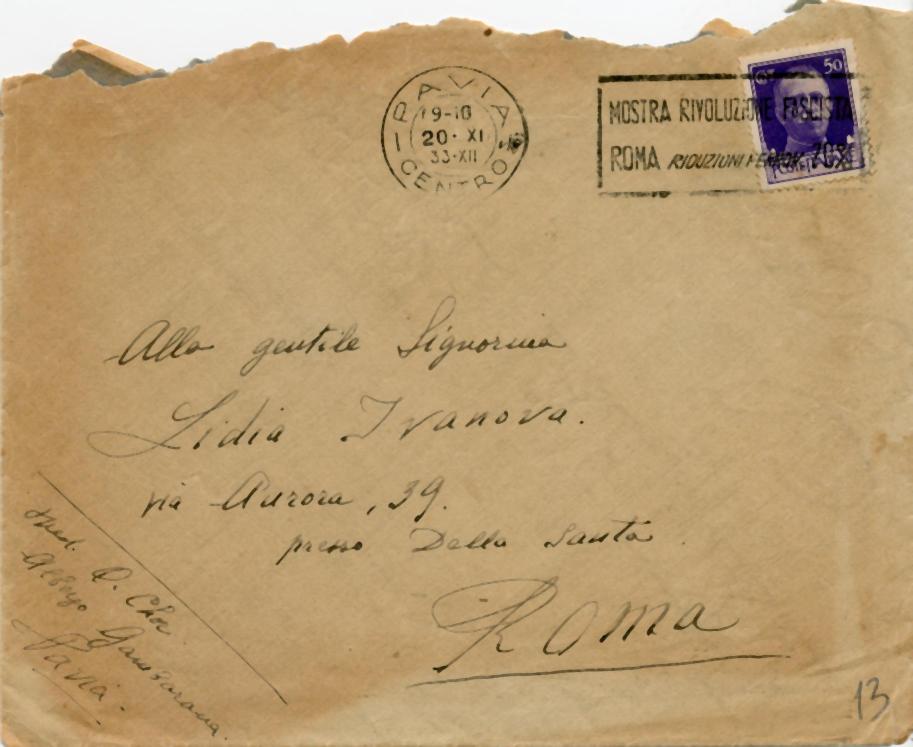 PAVIA
19-10
20· XI
33·XII
CENTRO
MOSTRA RIVOLUZIONE FASCISTA
ROMA RIDUZIONI FERROV. 70%
50
Alla gentile Signorina
Lidia Ivanova.
via Aurora, 39.
presso Della Santa
Roma
O. Chor
Albergo Gambarana
Pavia.
13